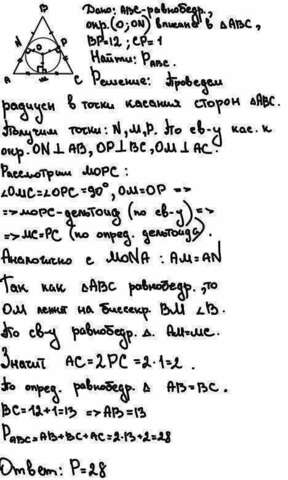 B
N
P
O
A
M
C
Дано: ABC-равнобедр.,
окр.(O;ON) вписана в ΔABC,
BP=12; CP=1
Найти: P_ABC.
Решение: Проведем
радиусы в точки касания сторон ΔABC.
Получим точки: N,M,P. По св-у кас. к
окр. ON⊥AB, OP⊥BC, OM⊥AC.
Рассмотрим MOPC:
∠OMC=∠OPC=90°, OM=OP =>
=> MOPC-дельтоид (по св-у) =>
=> MC=PC (по опред. дельтоида).
Аналогично с MONA: AM=AN
Так как ΔABC равнобедр., то
OM лежит на биссектр. BM ∠B.
По св-у равнобедр. Δ. AM=MC.
Значит AC=2PC=2·1=2.
По опред. равнобедр. Δ AB=BC.
BC=12+1=13 => AB=13
P_ABC=AB+BC+AC=2·13+2=28
Ответ: P=28